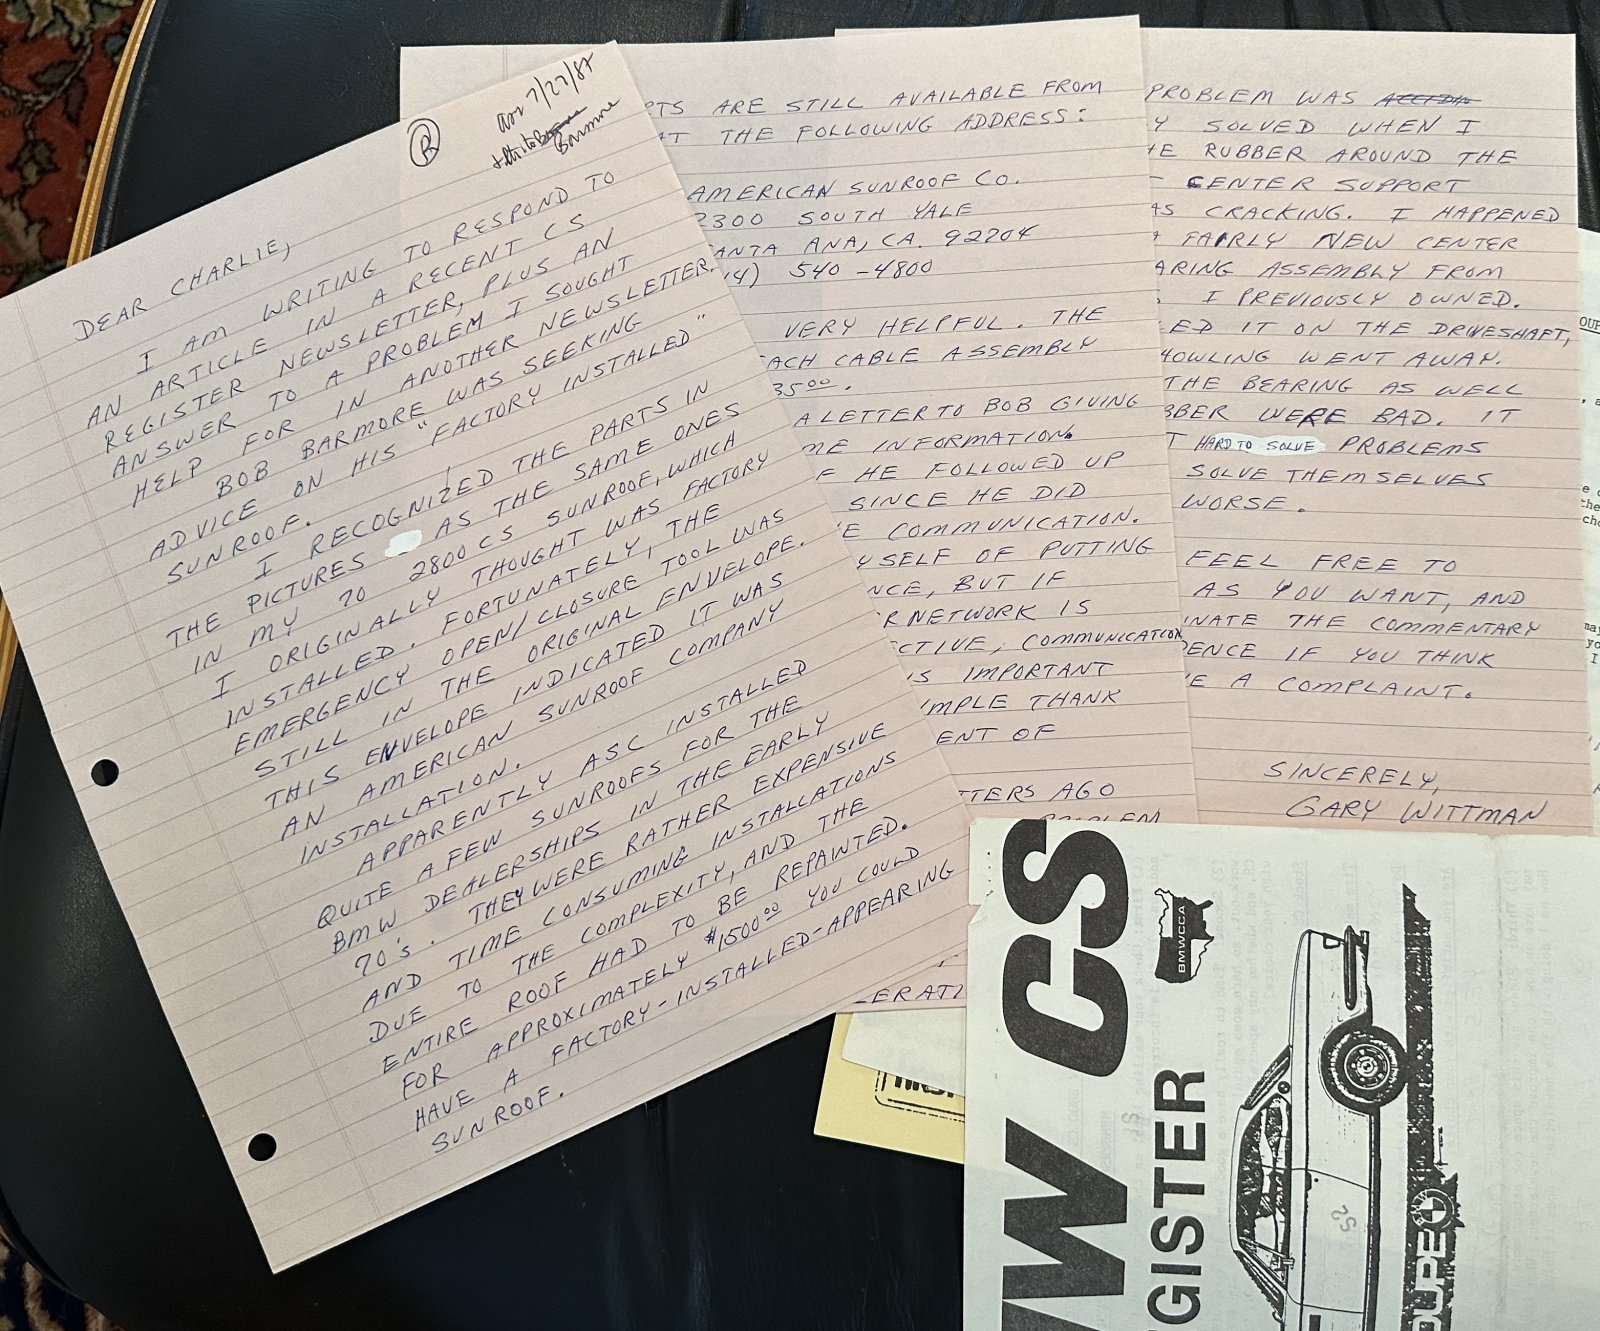 R
7/27/87
Barmore
DEAR CHARLIE,
I AM WRITING TO RESPOND TO
AN ARTICLE IN A RECENT CS
REGISTER NEWSLETTER, PLUS AN
ANSWER TO A PROBLEM I SOUGHT
HELP FOR IN ANOTHER NEWSLETTER.
BOB BARMORE WAS SEEKING
ADVICE ON HIS "FACTORY INSTALLED"
SUNROOF.
I RECOGNIZED THE PARTS IN
THE PICTURES AS THE SAME ONES
IN MY 70 2800CS SUNROOF, WHICH
I ORIGINALLY THOUGHT WAS FACTORY
INSTALLED. FORTUNATELY, THE
EMERGENCY OPEN/CLOSURE TOOL WAS
STILL IN THE ORIGINAL ENVELOPE.
THIS ENVELOPE INDICATED IT WAS
AN AMERICAN SUNROOF COMPANY
INSTALLATION.
APPARENTLY ASC INSTALLED
QUITE A FEW SUNROOFS FOR THE
BMW DEALERSHIPS IN THE EARLY
70'S. THEY WERE RATHER EXPENSIVE
AND TIME CONSUMING INSTALLATIONS
DUE TO THE COMPLEXITY, AND THE
ENTIRE ROOF HAD TO BE REPAINTED.
FOR APPROXIMATELY $1500.00 YOU COULD
HAVE A FACTORY-INSTALLED-APPEARING
SUNROOF.
RTS ARE STILL AVAILABLE FROM
AT THE FOLLOWING ADDRESS:
AMERICAN SUNROOF CO.
2300 SOUTH YALE
ANTA ANA, CA. 92704
14) 540-4800
VERY HELPFUL. THE
EACH CABLE ASSEMBLY
35.00.
A LETTER TO BOB GIVING
ME INFORMATION.
F HE FOLLOWED UP
SINCE HE DID
E COMMUNICATION.
YSELF OF PUTTING
NCE, BUT IF
R NETWORK IS
CTIVE, COMMUNICATION
IS IMPORTANT
IMPLE THANK
ENT OF
TTERS AGO
PROBLEM
ERATI
PROBLEM WAS
Y SOLVED WHEN I
HE RUBBER AROUND THE
CENTER SUPPORT
AS CRACKING. I HAPPENED
A FAIRLY NEW CENTER
ARING ASSEMBLY FROM
I PREVIOUSLY OWNED.
LED IT ON THE DRIVESHAFT,
HOWLING WENT AWAY.
THE BEARING AS WELL
BBER WERE BAD. IT
T HARD TO SOLVE PROBLEMS
SOLVE THEMSELVES
WORSE.
FEEL FREE TO
AS YOU WANT, AND
INATE THE COMMENTARY
DENCE IF YOU THINK
E A COMPLAINT.
SINCERELY,
GARY WITTMAN
W CS
GISTER
BMWCCA
OUPE
52